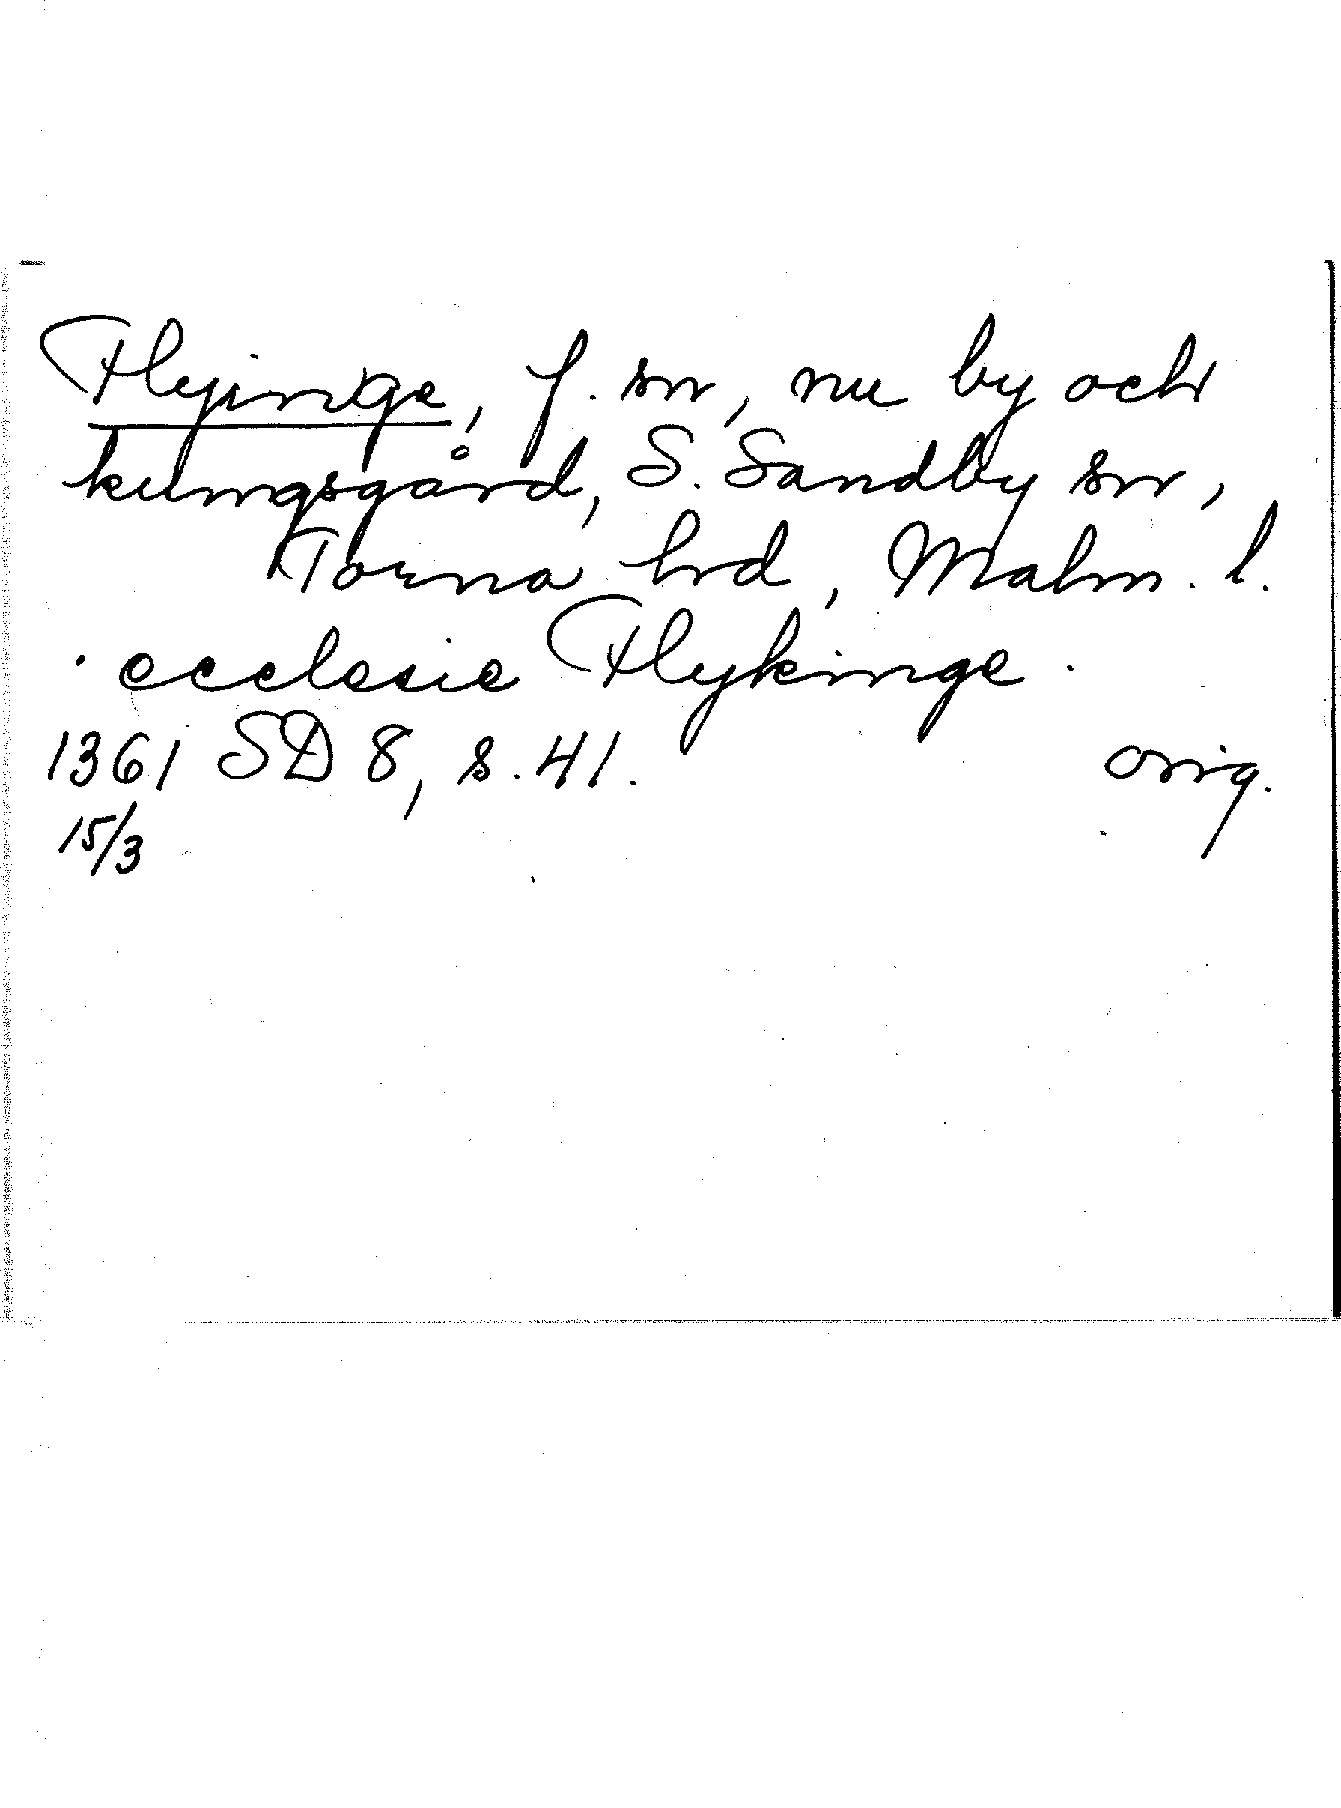 Flyinge, f. sn, nu by och
kungsgård, S. Sandby sn,
Torna hd, Malm. l.
ecclesie Flykinge.
1361 SD 8, s. 41. orig.
15/3